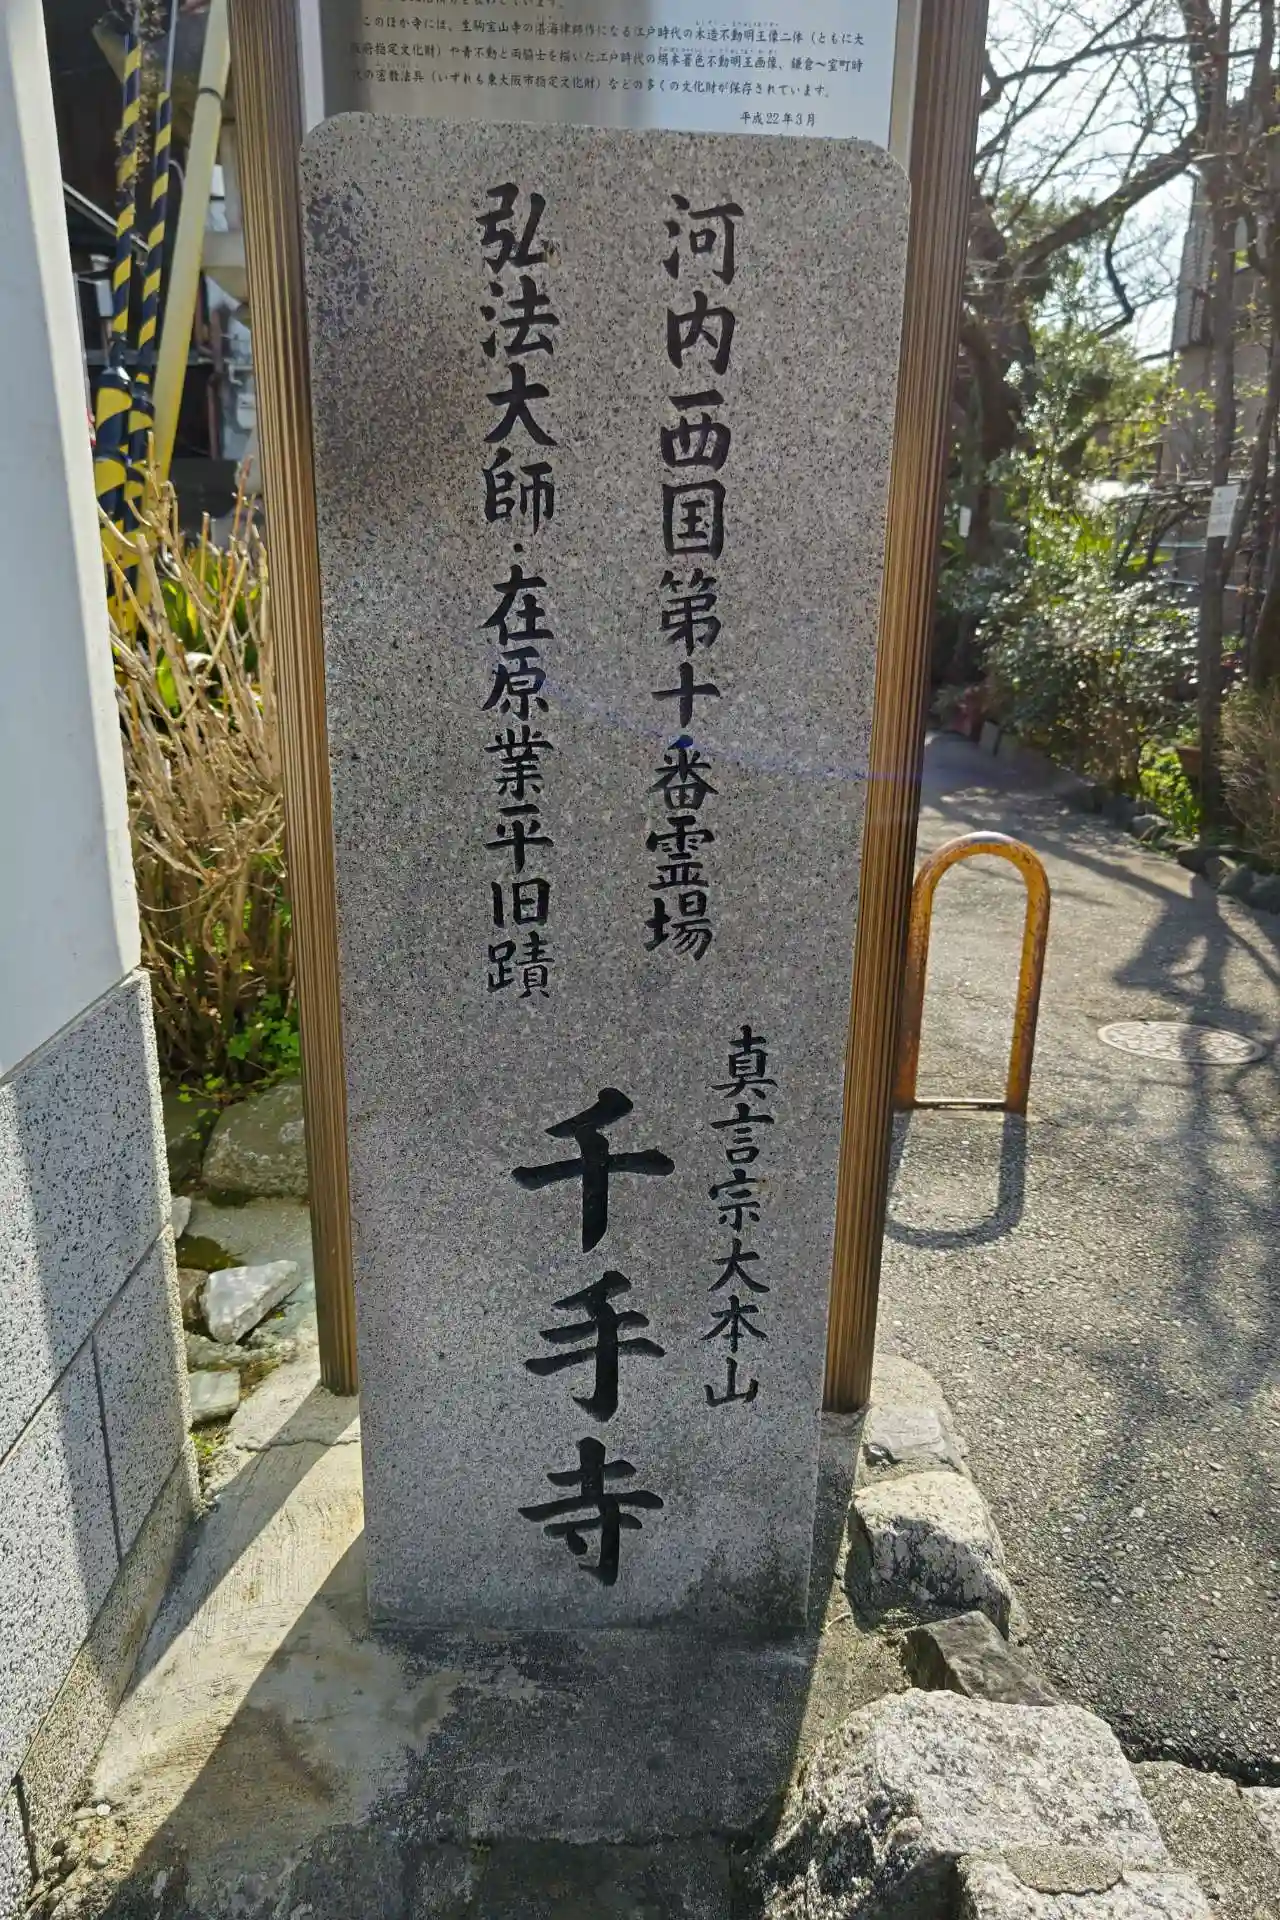 このほか寺には、生駒宝山寺の湛海律師作になる江戸時代の木造不動明王像二体（ともに大
阪府指定文化財）や青不動と両脇士を描いた江戸時代の絹本著色不動明王画像、鎌倉〜室町時
代の密教法具（いずれも東大阪市指定文化財）などの多くの文化財が保存されています。
平成22年3月
河内西国第十番霊場
弘法大師・在原業平旧蹟
真言宗大本山
千手寺